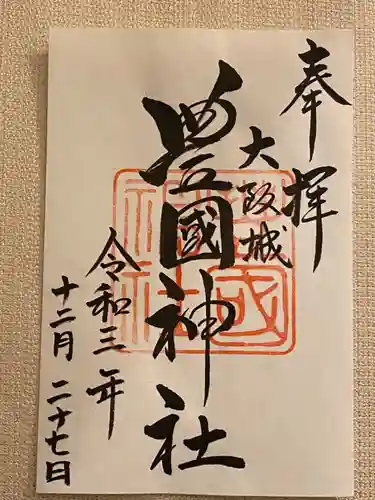 奉拝
大阪城
豊國神社
令和三年
十二月二十七日